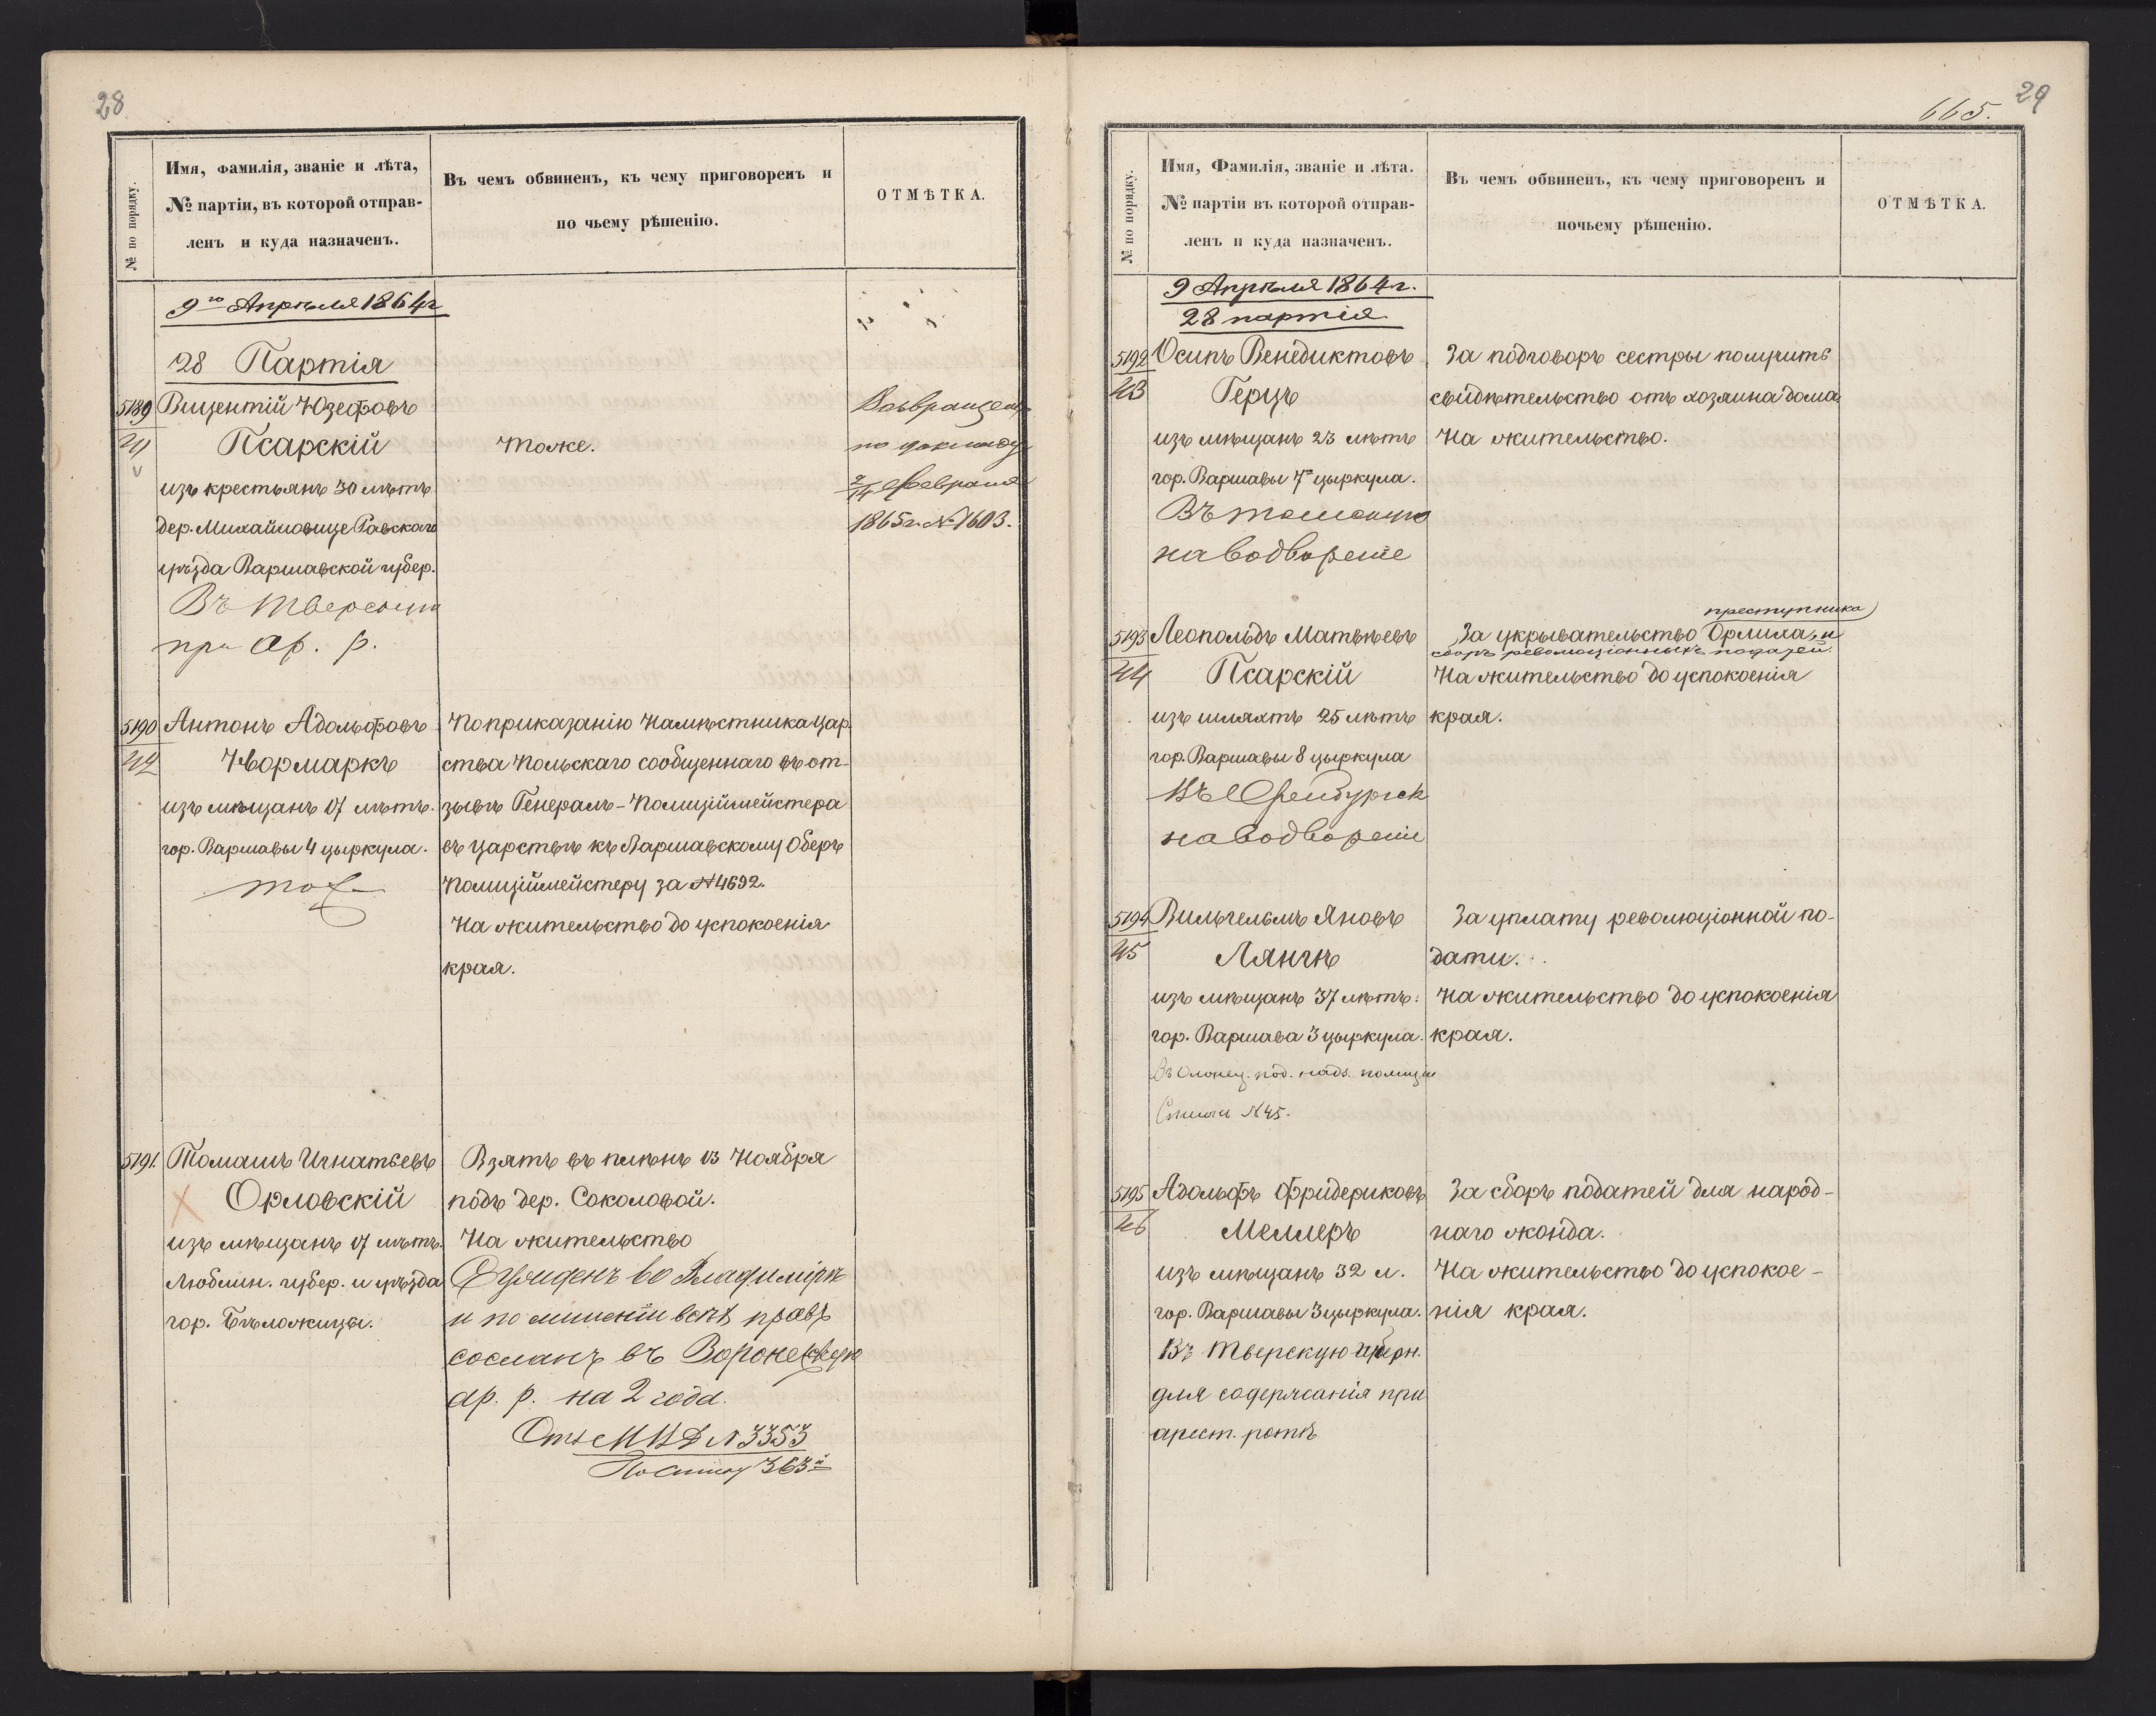 28
№ по порядку.
Имя, фамилія, званіе и лѣта,
№ партіи, въ которой отправ-
ленъ и куда назначенъ.
Въ чемъ обвиненъ, къ чему приговоренъ и
по чьему рѣшенію.
ОТМѢТКА.
9го Апрѣля 1864 г
28 Партія
5189
41
Вицентій Юзефовъ
Псарскій
изъ крестьянъ 30 лѣтъ
дер. Михайловице Равскаго
уѣзда Варшавской губер.
Въ Тверскую
при Ар. р.
Тоже.
Возвращенъ
по докладу
2/14 Февраля
1865 г. № 1603.
5190
42
Антонъ Адольфовъ
Юормаркъ
изъ мѣщанъ 17 лѣтъ.
гор. Варшавы 4 цыркула.
тоже
По приказанію Намѣстника Цар
ства Польскаго сообщеннаго въ от-
зывѣ Генералъ-Полиціймейстера
въ царствѣ къ Варшавскому Оберъ
Полиціймейстеру за № 4692.
На жительство до успокоенія
края.
5191.
Томашъ Игнатьевъ
Орловскій
изъ мѣщанъ 17 лѣтъ.
Люблин. губер. и уѣзда
гор. Бѣложицы.
Взятъ въ плѣнъ 13 Ноября
подъ дер. Соколовой.
На жительство
Осужденъ во Владимірѣ
и по лишеніи всѣхъ правъ
сосланъ въ Воронежскую
ар. р. на 2 года.
Отъ М В Д № 3353
По списку 363й
665.
29
№ по порядку.
Имя, Фамилія, званіе и лѣта.
№ партіи въ которой отправ-
ленъ и куда назначенъ.
Въ чемъ обвиненъ, къ чему приговоренъ и
почьему рѣшенію.
ОТМѢТКА.
9 Апрѣля 1864 г.
28 партія
5192
43
Осипъ Венедиктовъ
Герцъ
изъ мѣщанъ 23 лѣтъ
гор. Варшавы 7го цыркула.
Въ Томскую
на водвореніе
За подговоръ сестры получить
свидѣтельство отъ хозяина дома
На жительство.
5193
44
Леопольдъ Матвѣевъ
Псарскій
изъ шляхтъ 25 лѣтъ
гор. Варшавы 8 цыркула
Въ Оренбургск
на водвореніе
преступника
За укрывательство Орлиха, и
сборъ революціонныхъ податей.
На жительство до успокоенія
края.
5194
45
Вильгельмъ Яновъ
Лянге
изъ мѣщанъ 37 лѣтъ.
гор. Варшава 3 цыркула.
Въ Олонец. под. надз. полиціи
Списки № 45.
За уплату революціонной по-
дати.
На жительство до успокоенія
края.
5195
46
Адольфъ Фридериковъ
Меллеръ
изъ мѣщанъ 32 л.
гор. Варшавы 3 цыркула.
Въ Тверскую губерн.
для содержанія при
арест. ротѣ
За сборъ податей для народ-
наго жонда.
На жительство до успокое-
нія края.